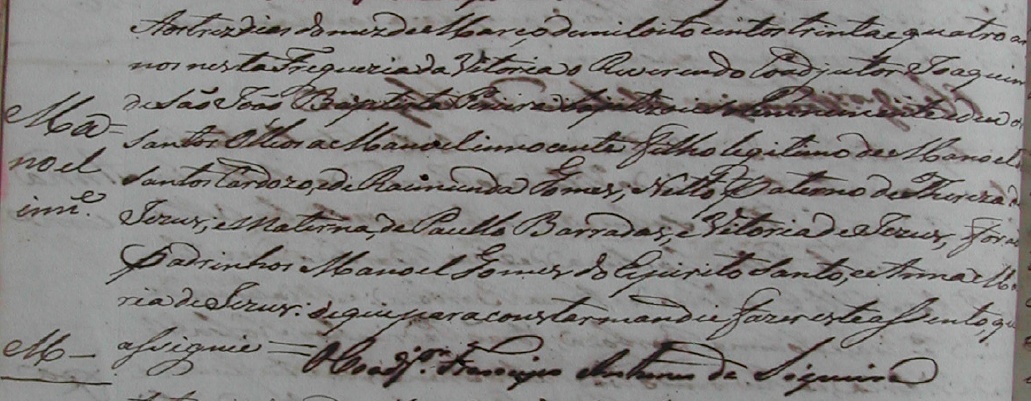 Aos trez dias do mez de Março de mil oito centos trinta e quatro an
nos nesta Freguezia da Vitoria o Reverendo Coadjutor Joaquim
de São João Baptista Pereira solemnemente e deo os
Ma=
noel
inn.e
Santos Oleos a Manoel innocente filho legitimo de Manoel
Santos Cardozo, e de Raimunda Gomes, Netto Paterno de Thereza de
Jezus, e Materna, de Paullo Barradas, e Vitoria de Jezus, forão
Padrinhos Manoel Gomes do Espirito Santo, e Anna Ma
ria de Jezus: de que para constar mandei fazer este assento, que
M— assignei = O Coadj.or Francisco Antunes de Siqueira